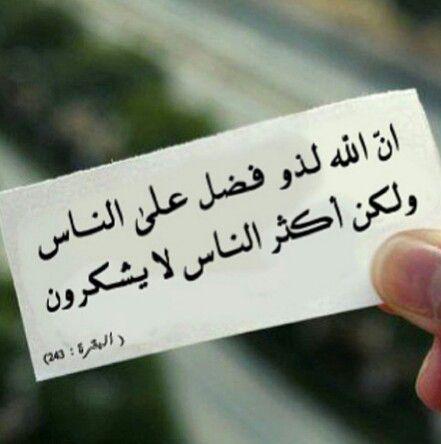 انّ الله لذو فضل على الناس
ولكن أكثر الناس لا يشكرون
(البقرة : 243)